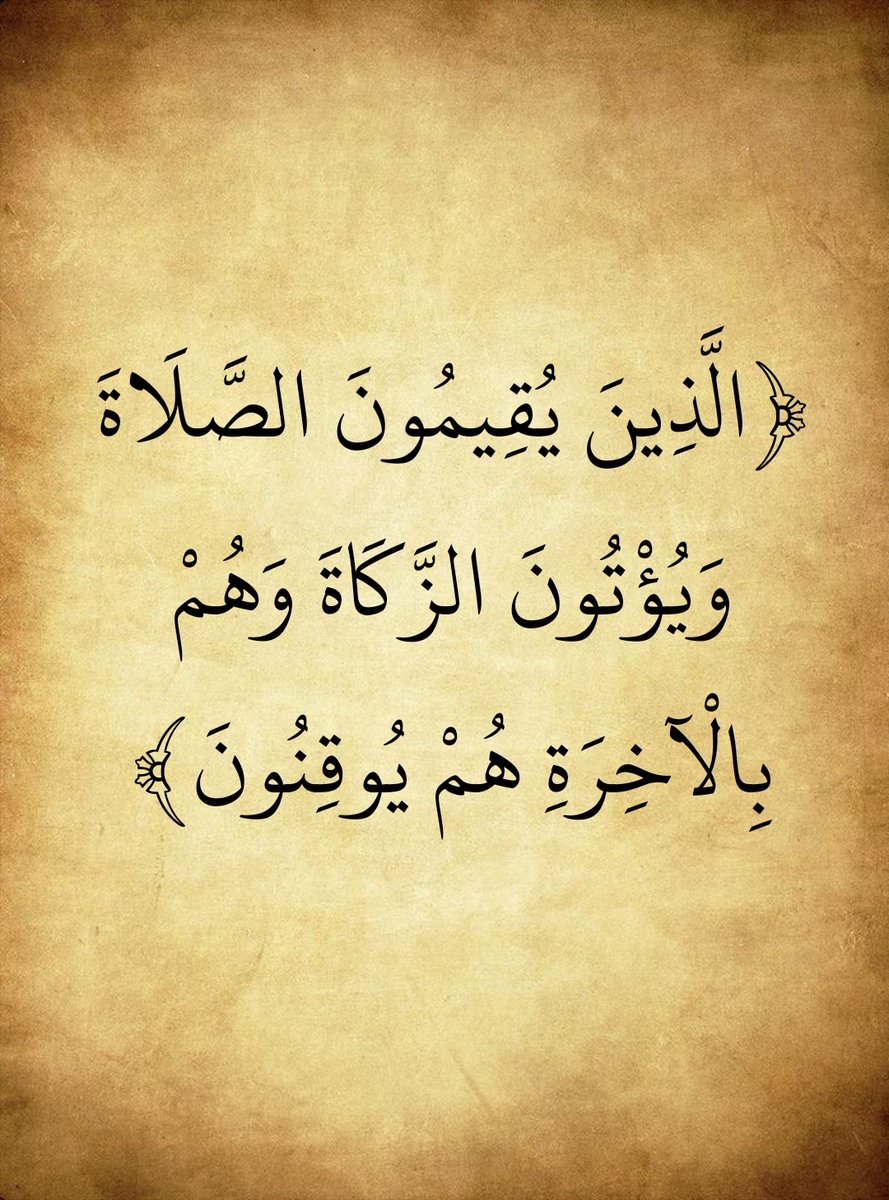 ﴿الَّذِينَ يُقِيمُونَ الصَّلَاةَ
وَيُؤْتُونَ الزَّكَاةَ وَهُمْ
بِالْآخِرَةِ هُمْ يُوقِنُونَ﴾